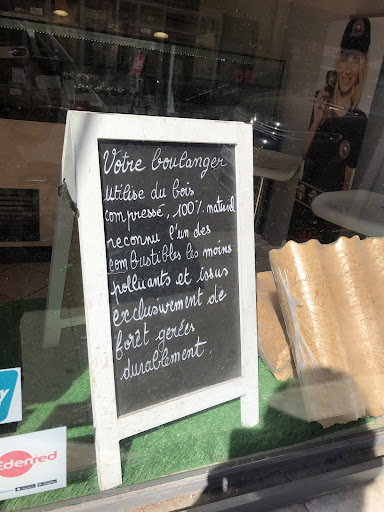 Votre boulanger
utilise du bois
compressé, 100% naturel
reconnu l'un des
combustibles les moins
polluants et issus
exclusivement de
forêt gerées
durablement.
Edenred